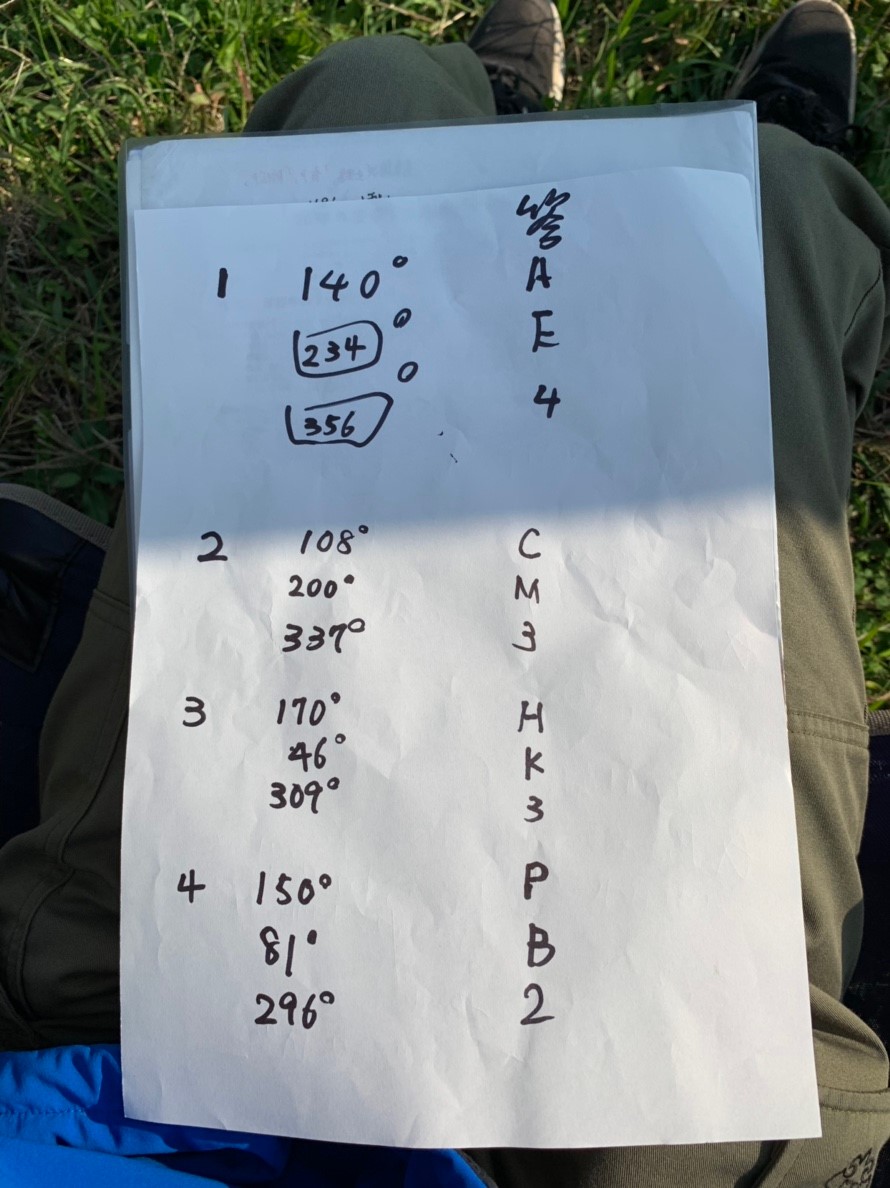 答
1 140° A
234° E
356° 4
2 108° C
200° M
337° 3
3 170° H
46° K
309° 3
4 150° P
81° B
296° 2